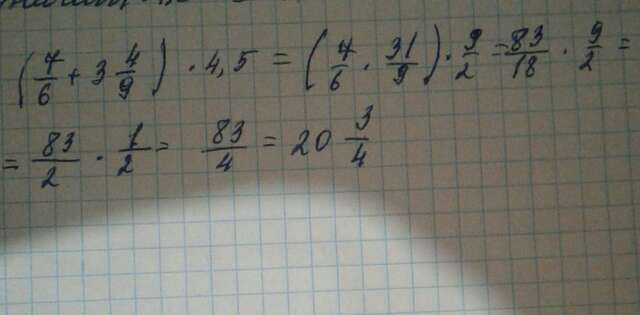 (7/6 + 3 4/9) · 4,5 = (7/6 · 31/9) · 9/2 = 83/18 · 9/2 =
= 83/2 · 1/2 = 83/4 = 20 3/4